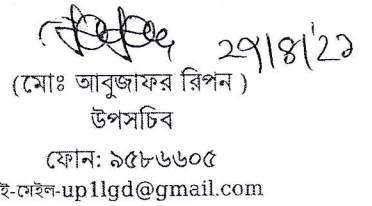 ২৭/৪/'২১
(মোঃ আবুজাফর রিপন )
উপসচিব
ফোন: ৯৫৮৬৬০৫
ই-মেইল-up1lgd@gmail.com